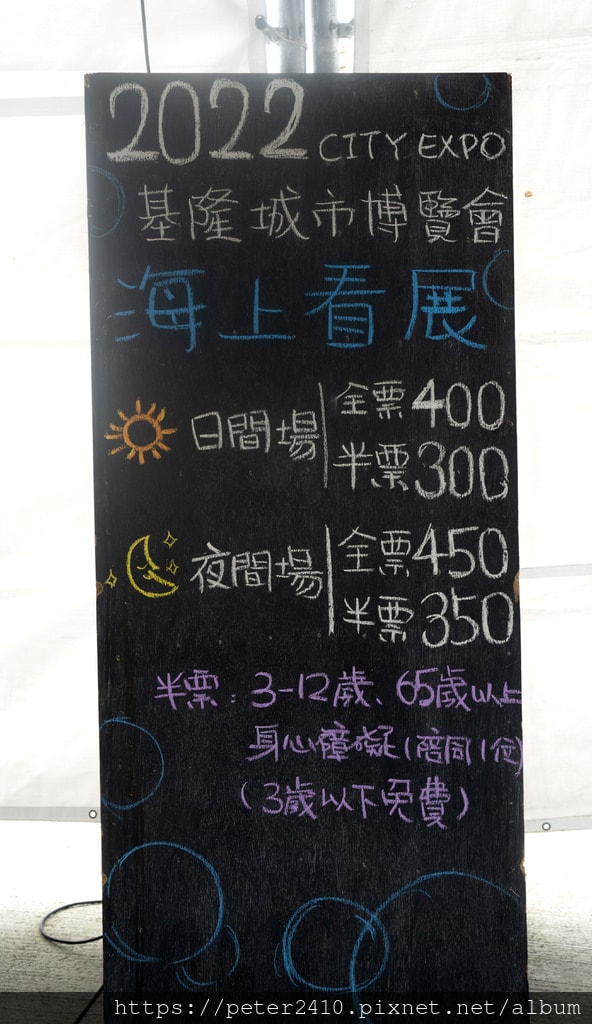 2022 CITY EXPO
基隆城市博覽會
海上看展
日間場 全票400
半票300
夜間場 全票450
半票350
半票：3-12歲、65歲以上
身心障礙(陪同1位)
(3歲以下免費)
https://peter2410.pixnet.net/album